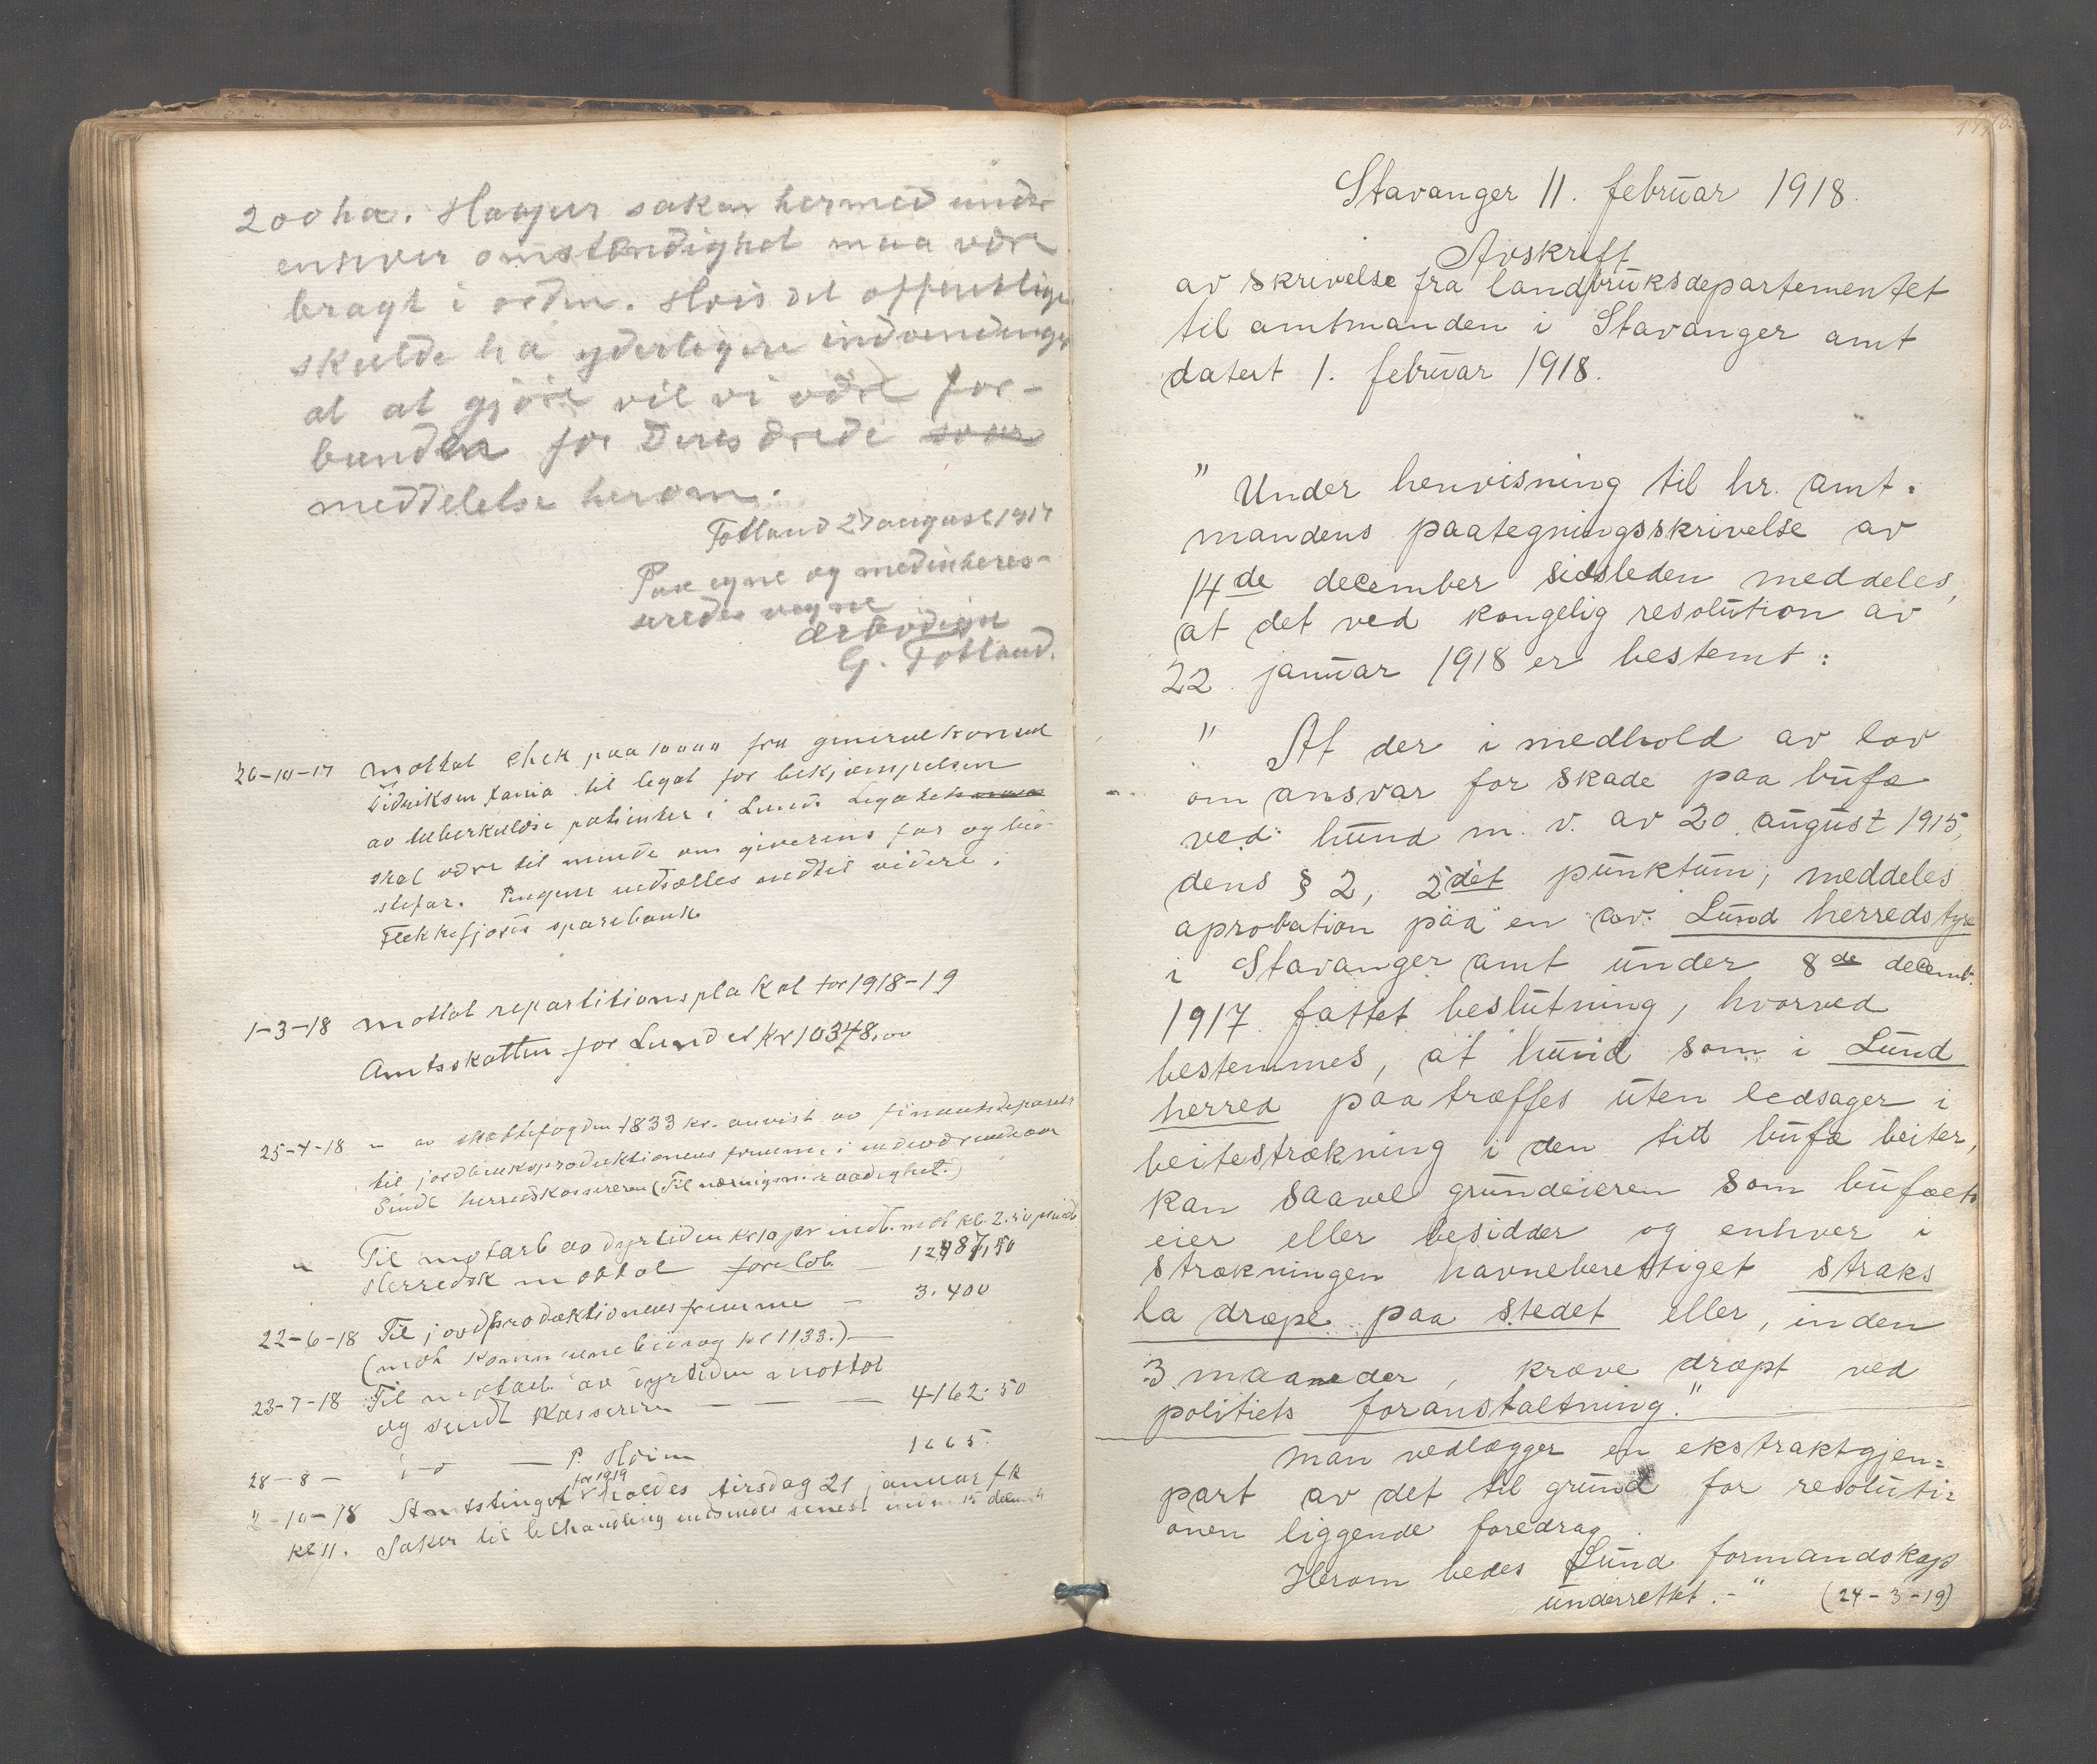 200 ha. Haaper saken hermed under
enhver omstændighet maa være
bragt i orden. Hvis det offentlige
skulde ha yderligere indvendinger
at at gjöre vil vi være for-
bunden for Deres ærede svar
meddelelse herom.
Totland 27 august 1917
Paa egne og medinteres-
seredes vegne
ærbødigst
G. Totland.
26-10-17 Mottat chek paa 10000 fra generalkonsul
Didriksen, til legat for bekjæmpelsen
av tuberkuløse patienter i Lund. Legatet
skal være til minde om giverens far og
stefar. Pengene indsættes indtil videre i
Flekkefjords sparebank
1-3-18 Mottat repartitionsplakat for 1918-19
Amtsskatten for Lund er kr 10348,00
25-4-18 " av skattefogden 1833 kr. anvist av finantsdepartet
til jordbruksproduktionens fremme i indeværende aar
Sendt herredskassereren (Til næringsn. raadighet.)
" Til motarb av dyrtiden kr 10 pr indb. mot kb. 2.50 pr indb
Herredsk mottat forelöb. 12487,50
22-6-18 Til jordproduktionens fremme — 3.400
(mot kommunebidrag kr 1133.)—
23-7-18 Til motarb. av dyrtiden mottat
og sendt kassereren — — — 4162.50
28-8- — P. Heim 1665.
2-10-18 Amtstinget for 1919 holdes tirsdag 21 januar f k
kl 11. Saker til behandling indsendes senest inden 15 decemb
Stavanger 11. februar 1918.
Avskrift
av skrivelse fra landbruksdepartementet
til amtmanden i Stavanger amt
datert 1. februar 1918.
" Under henvisning til hr. amt-
mandens paategningsskrivelse av
14de december sidsleden meddeles,
at det ved kongelig resolution av
22. januar 1918 er bestemt:
" At der i medhold av lov
om ansvar for skade paa bufæ
ved hund m. v. av 20. august 1915,
dens § 2, 2det punktum, meddeles
aprobation paa en av Lund herredstyre
i Stavanger amt under 8de decemb.
1917 fattet beslutning, hvorved
bestemmes, at hund som i Lund
herred paatræffes uten ledsager i
beitestrækning i den tid bufæ beiter,
kan saavel grundeieren som bufæets
eier eller besidder og enhver i
strækningen havneberettiget straks
la dræpe paa stedet eller, inden
3 maaneder, kræve dræpt ved
politiets foranstaltning."
Man vedlægger en ekstraktgjen-
part av det til grund for resoluti-
onen liggende foredrag.
Herom bedes Lund formandskap
underrettet.-" (24-3-19)